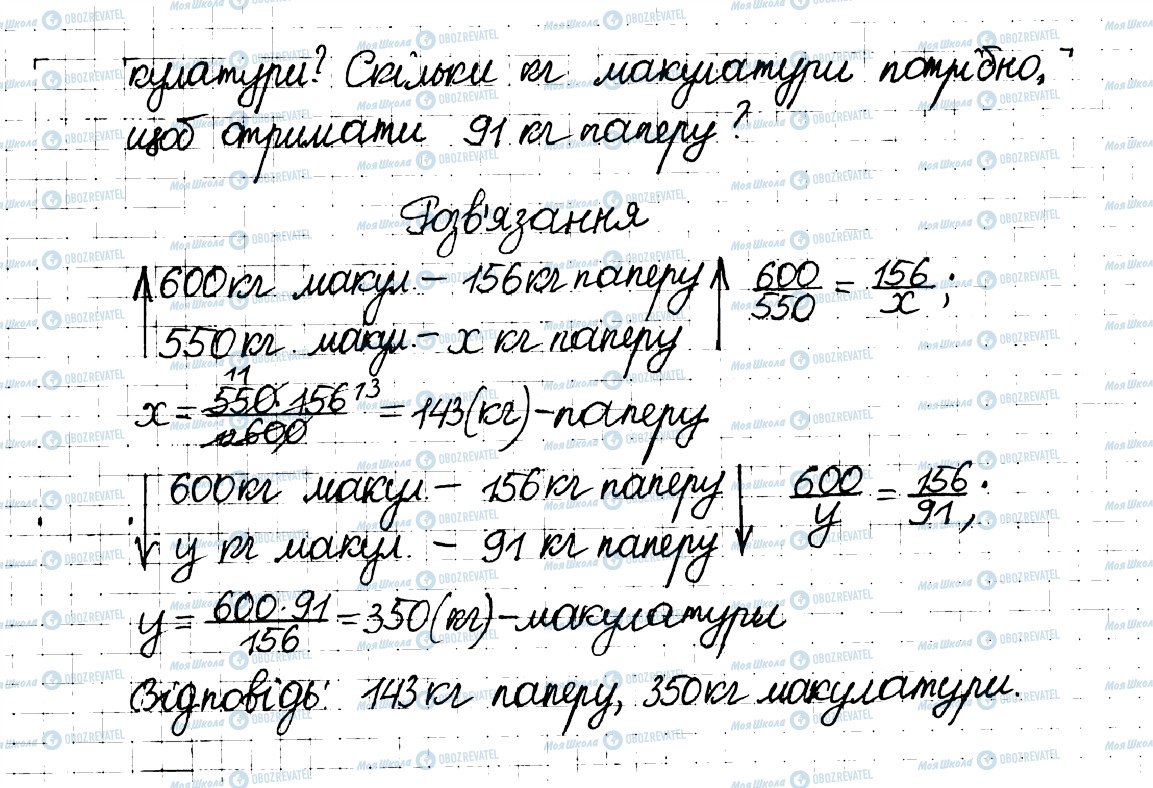 кулатури? Скільки кг макулатури потрібно,
щоб отримати 91 кг паперу?
Розв'язання
600 кг макул. – 156 кг паперу 600/550 = 156/x;
550 кг макул. – x кг паперу
x = 550·156/600 = 143 (кг) – паперу
11 13
600 кг макул. – 156 кг паперу 600/y = 156/91;
y кг макул. – 91 кг паперу
y = 600·91/156 = 350 (кг) – макулатуры
Відповідь: 143 кг паперу, 350 кг макулатури.
Моя Школа OBOZREVATEL